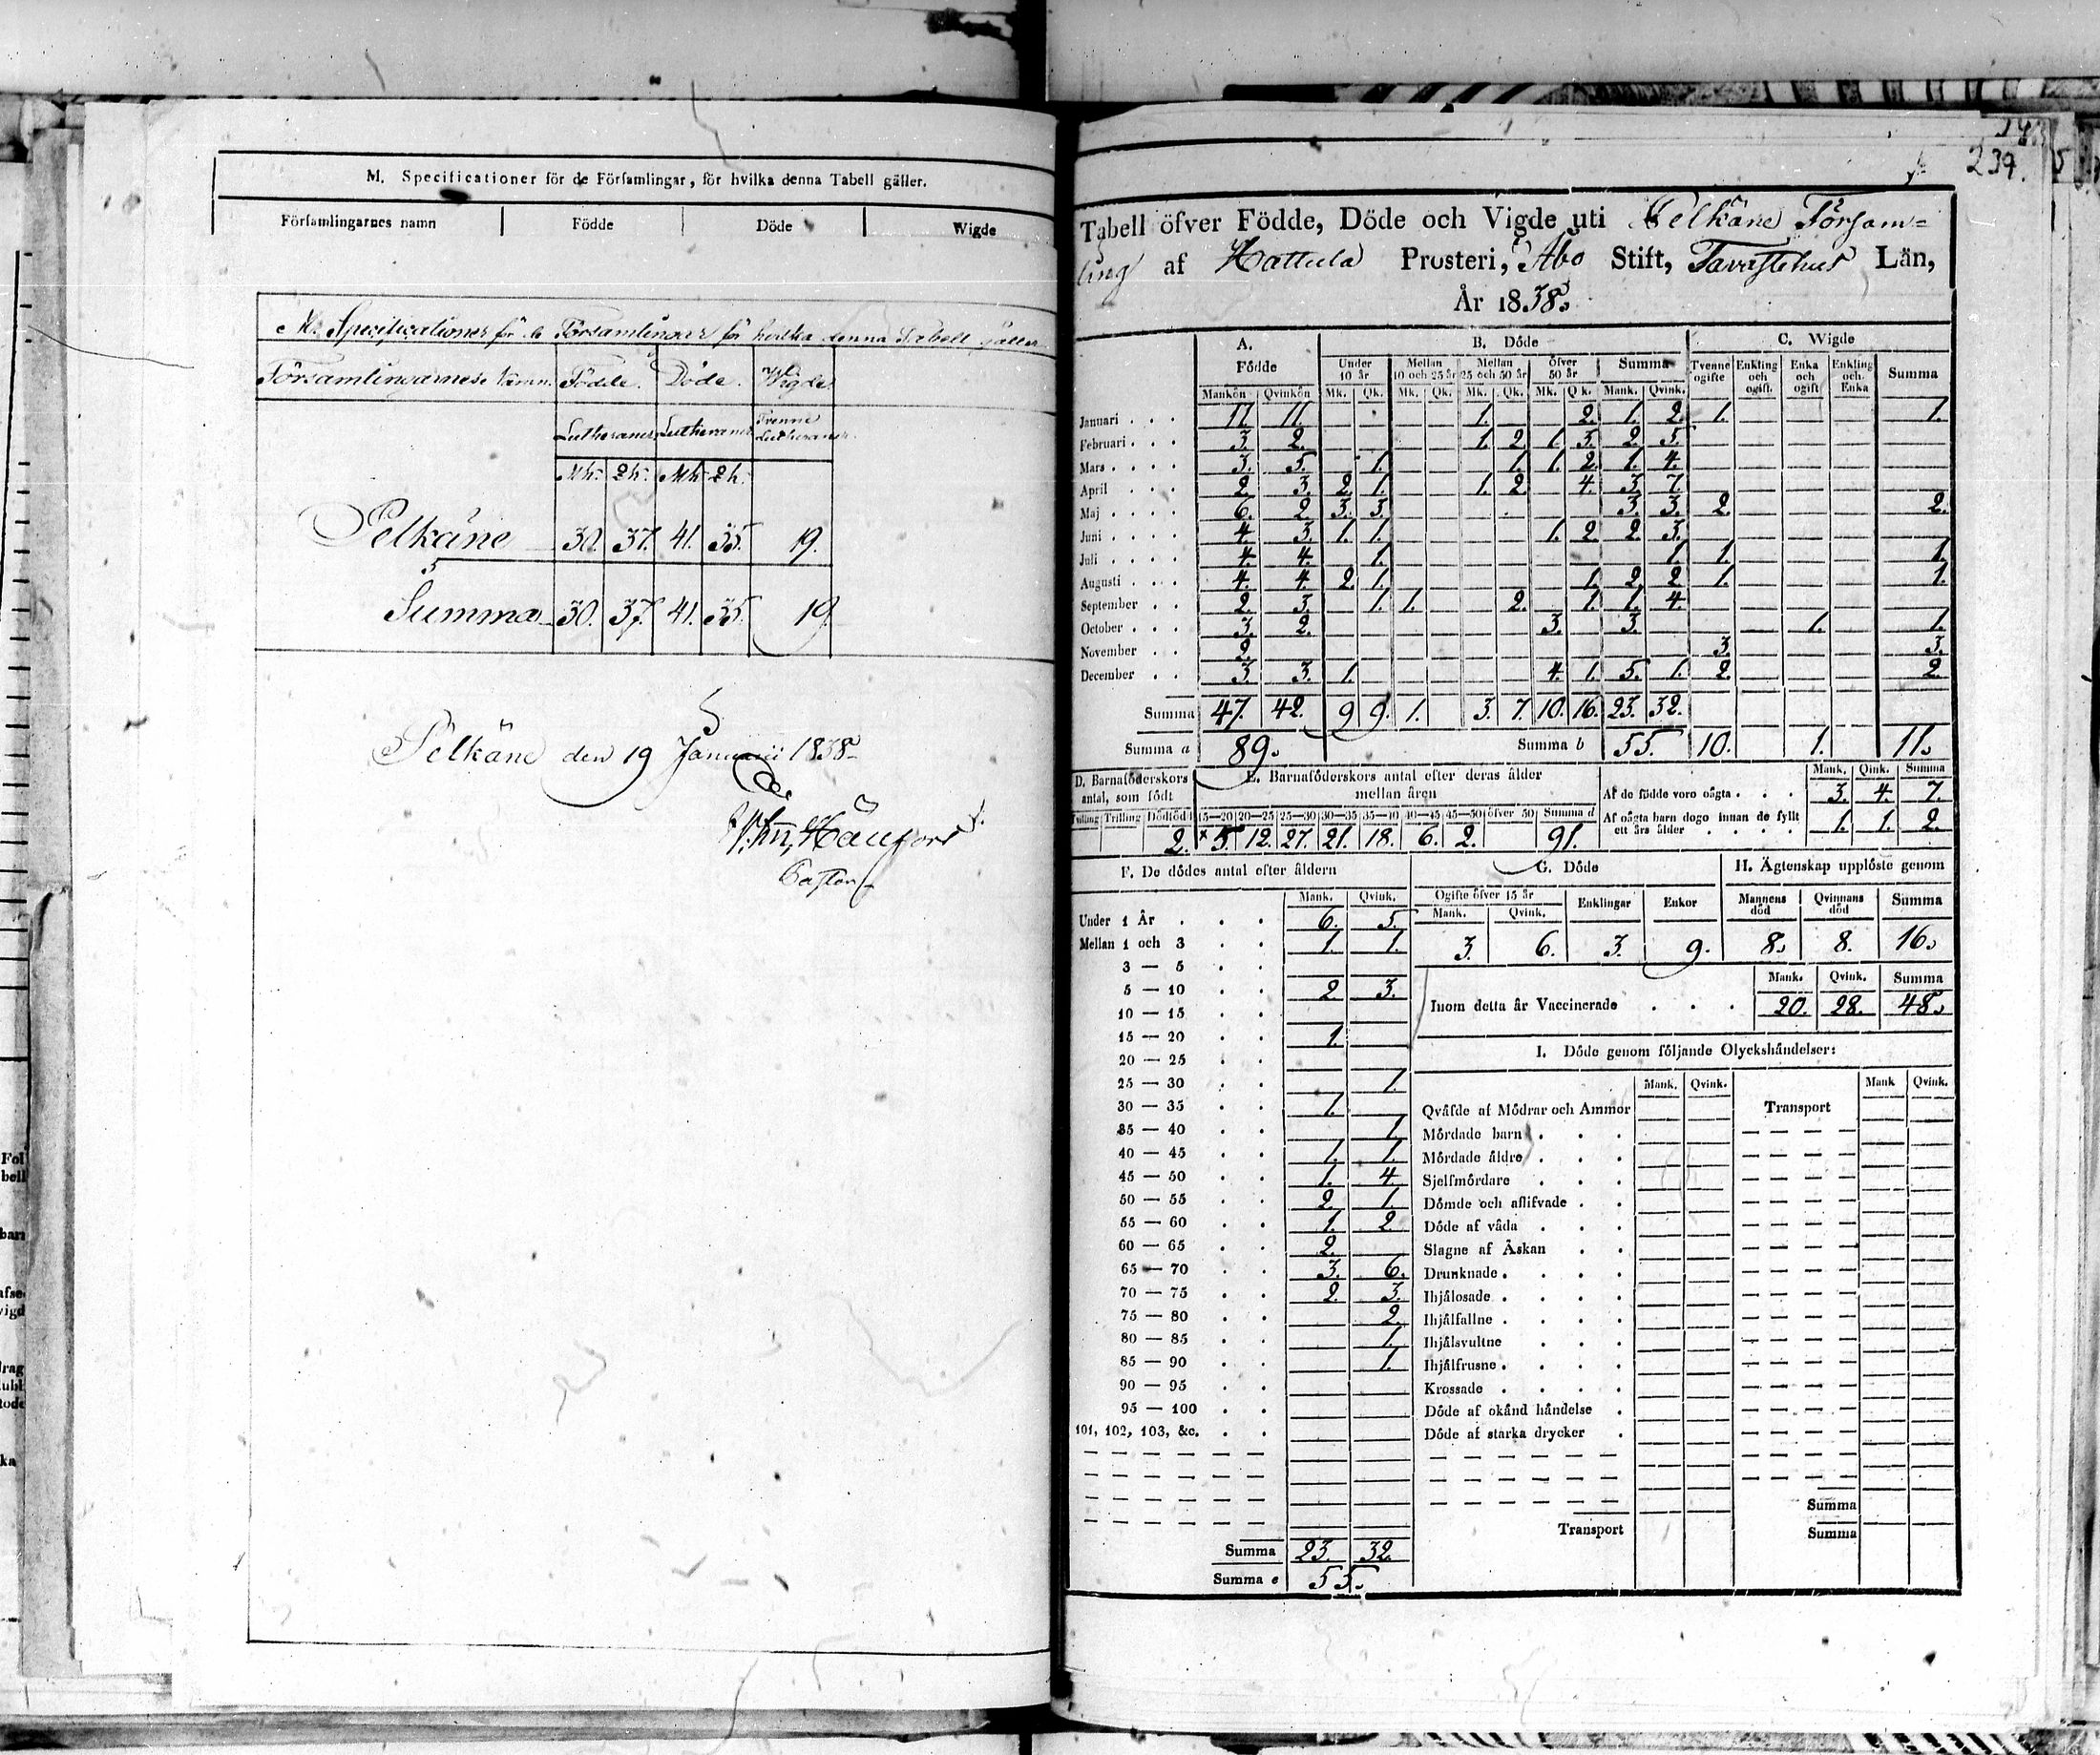 M. Specificationer för de Församlingar, för hvilka denna Tabell gäller.
Församlingarnes namn Födde Döde Wigde
M. Specificationer för de Församlingar för hvilka denna Tabell gäller
Församlingarnes Namn. Födde. Döde. Vigde
Lutheraner Lutheraner Tvenne Lutheraner
Mk: Qk: Mk Qk.
Pelkäne 30. 37. 41. 35. 19.
Summa 30. 37. 41. 35. 19.
Pelkäne den 19 Januarii 1838
Pastor
239.
Tabell öfver Födde, Döde och Vigde uti Pelkäne Försam=
ling af Hattula Prosteri, Åbo Stift, Tavastehus Län,
År 1838.
A. Födde B. Döde C. Wigde
Under 10 år Mellan 10 och 25 år Mellan 25 och 50 år öfver 50 år Summa Tvenne ogifte Enkling och ogift. Enka och ogift Enkling och Enka Summa
Mankön Qvinkön Mk. Qk. Mk. Qk. Mk. Qk. Mk. Qk. Mank. Qvink.
Januari . . . 11. 11. 1. 2. 1. 2. 1. 1.
Februari . . . 3. 2. 1. 2. 1. 3. 2. 5.
Mars . . . . 3. 5. 1. 1. 1. 2. 1. 4.
April . . . 2. 3. 2. 1. 1. 2. 4. 3. 7.
Maj . . . . 6. 2. 3. 3. 3. 3. 2. 2.
Juni . . . . 4. 3. 1. 1. 1. 2. 2. 3.
Juli . . . . 4. 4. 1. 1. 1. 1.
Augusti . . . 4. 4. 2. 1. 1. 2. 2. 1. 1.
September . . 2. 3. 1. 1. 2. 1. 1. 4.
October . . . 3. 2. 3. 3. 1. 1.
November . . 2. 3. 3.
December . . 3. 3. 1. 4. 1. 5. 1. 2. 2.
Summa 47. 42. 9 9. 1. 3. 7. 10. 16. 23. 32.
Summa a 89. Summa b 55. 10. 1. 11.
D. Barnaföderskors antal, som födt
E. Barnaföderskors antal efter deras ålder mellan åren
Tvilling Trilling Dödfödt 15—20 20—25 25—30 30—35 35—40 40—45 45—50 öfver 50 Summa d
2. 5. 12. 27. 21. 18. 6. 2. 91.
Mank. Qink. Summa
Af de födde voro oägta . . . 3. 4. 7.
Af oägta barn dogo innan de fyllt ett års ålder . . . . 1. 1. 2.
F. De dödes antal efter åldern
Mank. Qvink.
Under 1 År . . . 6. 5.
Mellan 1 och 3 . . 1. 1.
3 — 5 . .
5 — 10 . . 2 3.
10 — 15 . .
15 — 20 . . 1.
20 — 25 . .
25 — 30 . . 1.
30 — 35 . . 1.
35 — 40 . . 1.
40 — 45 . . 1. 1.
45 — 50 . . 1. 4.
50 — 55 . . 2. 1.
55 — 60 . . 1. 2
60 — 65 . . 2.
65 — 70 . . 3. 6.
70 — 75 . . 2. 3.
75 — 80 . . 2.
80 — 85 . . 1.
85 — 90 . . 1.
90 — 95 . .
95 — 100 . .
101, 102, 103, &c. . .
Summa 23. 32.
Summa e 55.
G. Döde H. Ägtenskap upplöste genom
Ogifte öfver 15 år Enklingar Enkor Mannens död Qvinnans död Summa
Mank. Qvink.
3. 6. 3. 9. 8. 8. 16.
Mank. Qvink. Summa
Inom detta år Vaccinerade . . . 20. 28. 48.
I. Döde genom följande Olyckshändelser:
Mank. Qvink. Mank Qvink.
Qväfde af Mödrar och Ammor Transport
Mördade barn . . .
Mördade äldre . . .
Sjelfmördare . . .
Dömde och aflifvade . .
Döde af våda . . .
Slagne af Åskan . .
Drunknade . . . .
Ihjälosade . . . .
Ihjälfallne . . . .
Ihjälsvultne . . .
Ihjälfrusne . . . .
Krossade . . . .
Döde af okänd händelse .
Döde af starka drycker .
Summa
Transport Summa